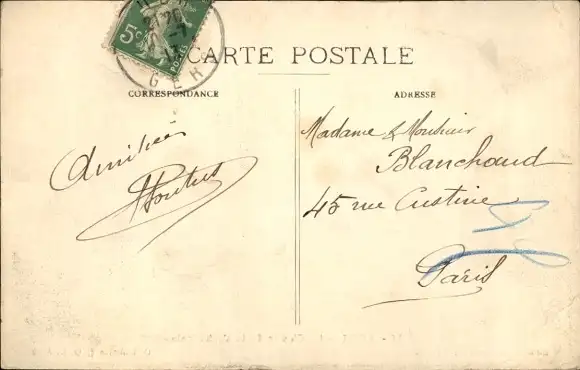 5c
POSTES
GERS
CARTE POSTALE
CORRESPONDANCE
ADRESSE
Amitiés
Madame & Monsieur
Blanchaud
45 rue Custine
Paris